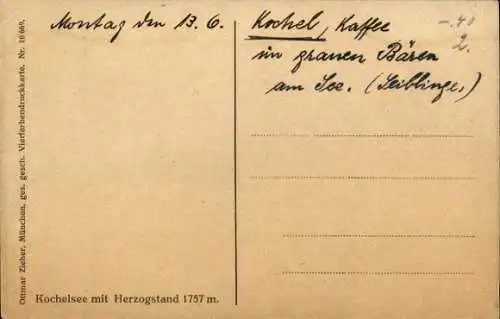 Montag den 13. 6.
Kochel, Kaffee
im grauen Bären
am See. (Seiblinge,)
-.40
2.
Ottmar Zieher, München, ges. gesch. Vierfarbendruckkarte. Nr. 10 669.
Kochelsee mit Herzogstand 1757 m.